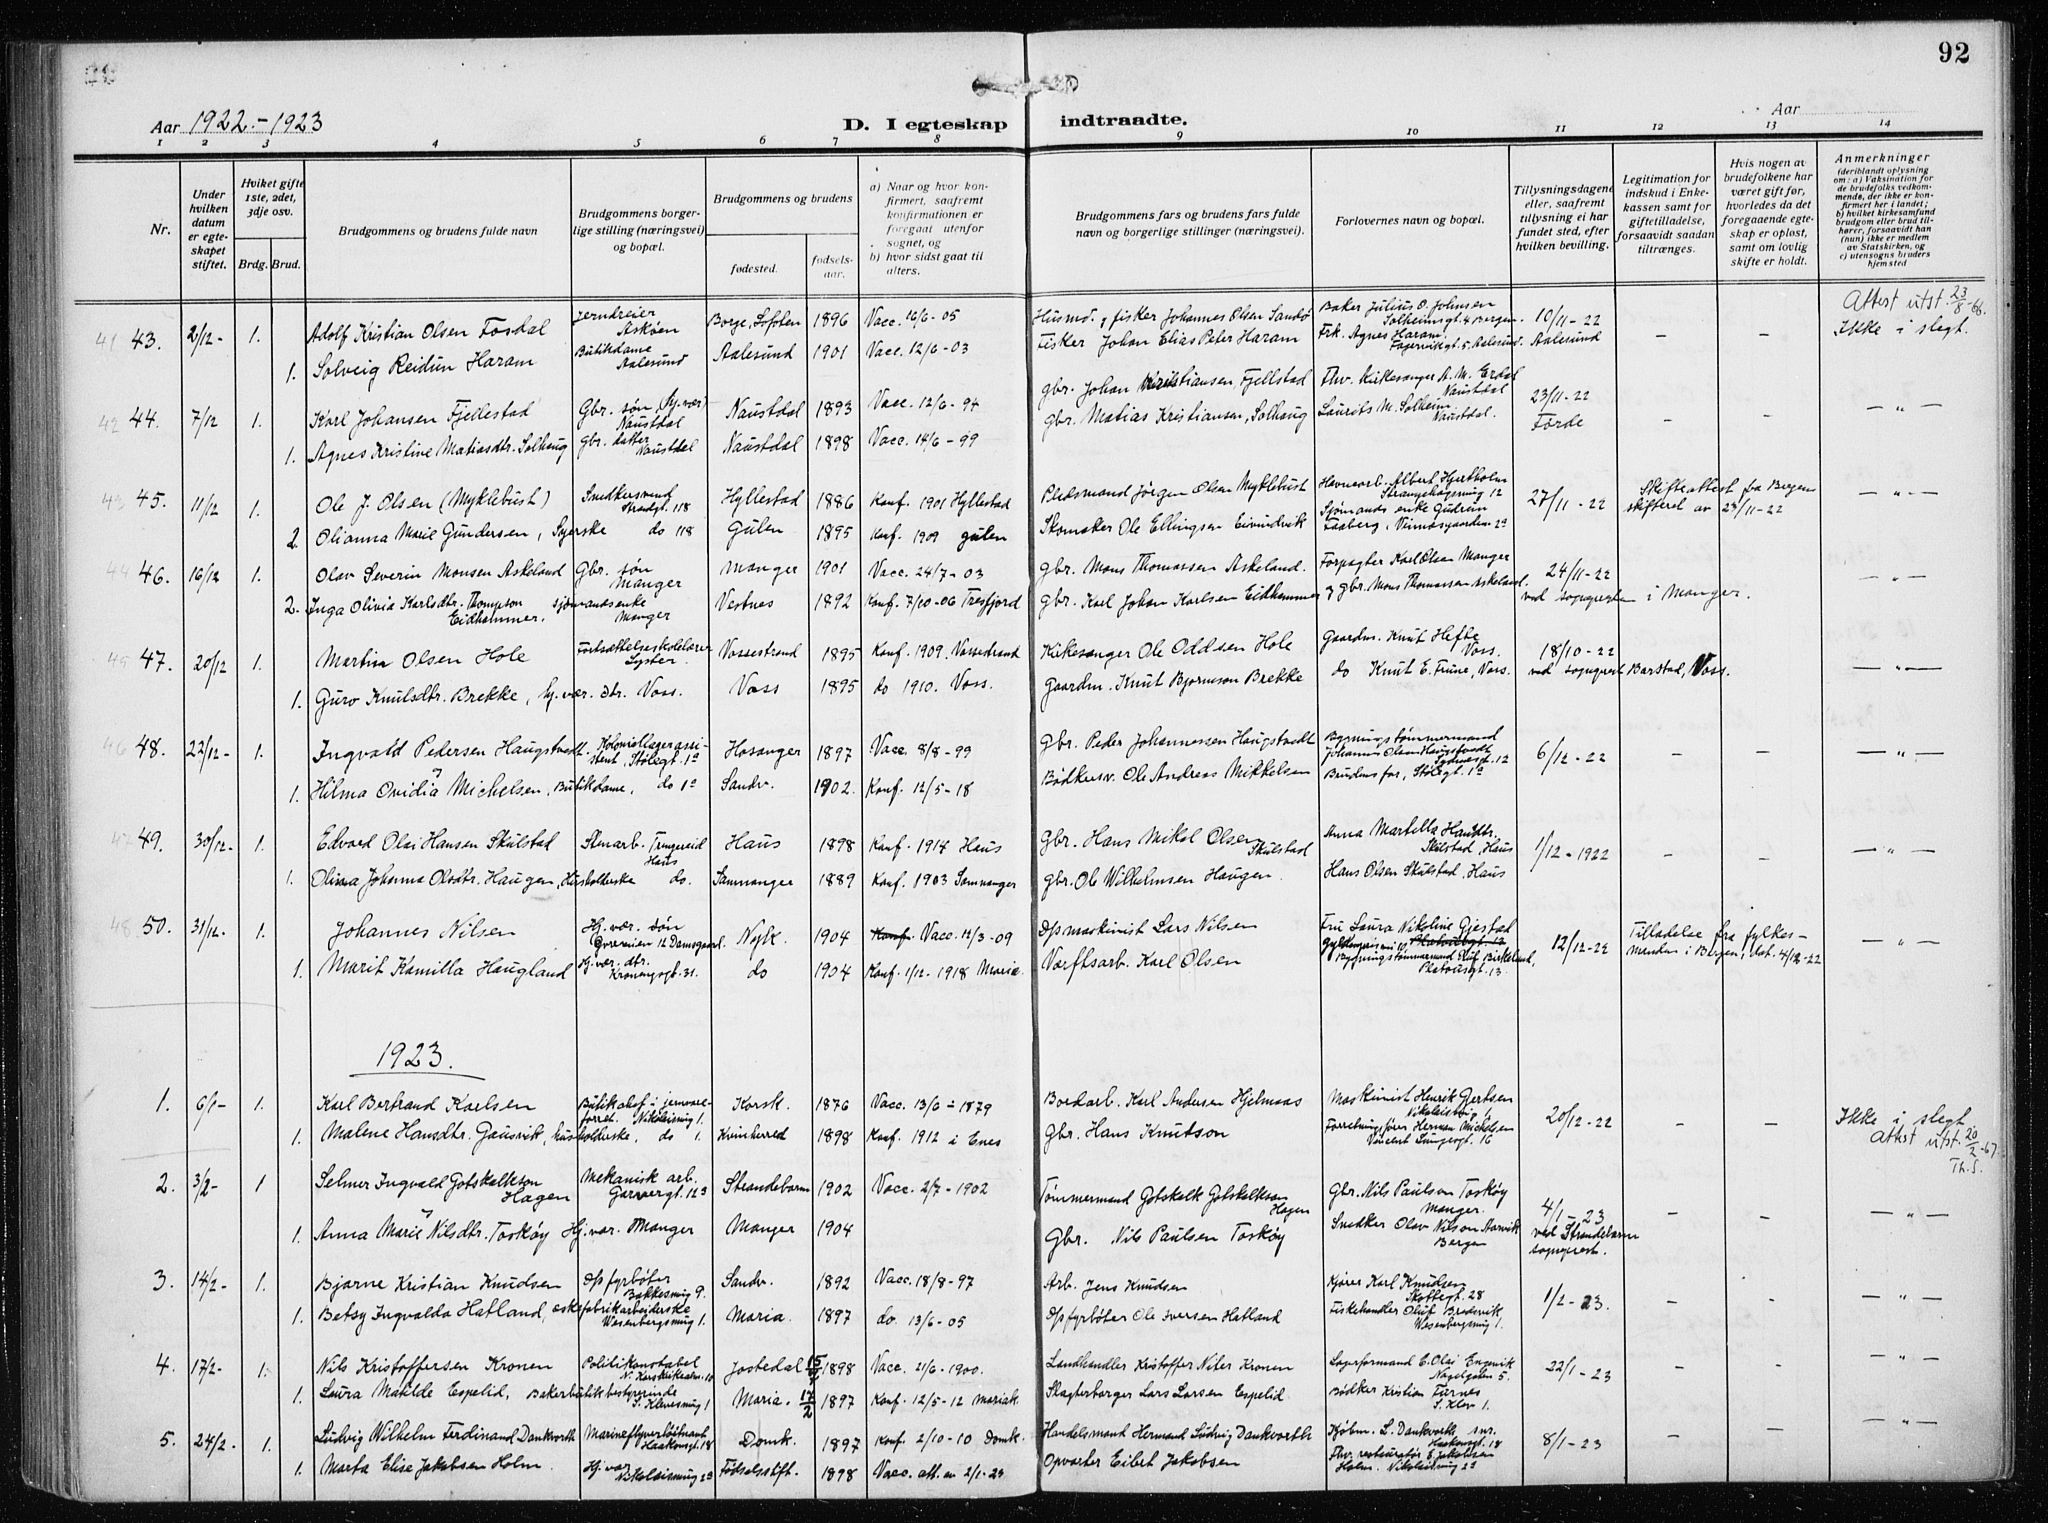 92
Aar 1922.-1923
D. I egteskap indtraadte.
Aar
1 2 3 4 5 6 7 8 9 10 11 12 13 14
Nr.
Under hvilken datum er egteskapet stiftet.
Hviket gifte 1ste, 2det, 3dje osv.
Brdg. Brud.
Brudgommens og brudens fulde navn
Brudgommens borgerlige stilling (næringsvei) og bopæl.
Brudgommens og brudens
fødested.
fødselsaar.
a) Naar og hvor konfirmert, saafremt konfirmationen er foregaat utenfor sognet, og
b) hvor sidst gaat til alters.
Brudgommens fars og brudens fars fulde navn og borgerlige stillinger (næringsvei).
Forlovernes navn og bopæl.
Tillysningsdagene eller, saafremt tillysning ei har fundet sted, efter hvilken bevilling.
Legitimation for indskud i Enkekassen samt for giftetilladelse, forsaavidt saadan tiltrænges.
Hvis nogen av brudefolkene har været gift før, hvorledes da det foregaaende egteskap er opløst, samt om lovlig skifte er holdt.
Anmerkninger (deriblandt oplysning om: a) Vaksination for de brudefolks vedkommende, der ikke er konfirmert her i landet; b) hvilket kirkesamfund brudgom eller brud tilhører, forsaavidt han (hun) ikke er medlem av Statskirken, og c) utensogns bruders hjemsted
41 43. 2/12- 1. Adolf Kristian Olsen Fosdal Jerndreier Askøen Borge, Lofoten 1896 Vacc. 16/6-05 Husmd. & fisker Johannes Olsen Sandø Baker Julius O. Johnsen Solheimsgt. 4 Bergen. 10/11-22 - - Attest utst. 23/8-66. Ikke i slegt.
1. Solveig Reidun Haram Butikdame Aalesund Aalesund 1901 Vacc. 12/6-03 Fisker Johan Elias Peter Haram Frk. Agnes Haram Fagervikgt. 5. Aalesund. Aalesund
42 44. 7/12 1. Karl Johansen Fjellestad Gbr. søn, (hj. vær) Naustdal Naustdal 1893 Vacc. 12/6-94 gbr. Johan Kristiansen, Fjellstad Fhv. Kirkesanger A. M. Erdal Naustdal 23/11-22 - - - " -
1. Agnes Kristine Matiasdtr. Solhaug gbr. datter Naustdal Naustdal 1898 Vacc. 14/6-99 gbr. Matias Kristiansen, Solhaug Laurits M. Solheim Naustdal. Førde
43 45. 11/12 1. Ole J. Olsen (Myklebust) Snedkersvend Strandgt. 118 Hyllestad 1886 Konf. 1901 Hyllestad Pladsmand Jørgen Olsen Myklebust Havnearb. Albert Hjertholm 12 27/11-22 Skifteattest fra Bergen skifteret av 23/11-22 - " -
2. Olianna Marie Gundersen, Syerske do 118 Gulen 1895 Konf. 1909 gulen Skomaker Ole Ellingsen Eivindvik Sjømands enke Gudrun Faaberg,
44 46. 16/12 1. Olav Severin Monsen Askeland Gbr. søn Manger Manger 1901 Vacc. 24/7-03 gbr. Mons Thomassen Askeland. Forpagter Karl Olsen Manger 24/11-22 - " -
2. Inga Olivia Karlsdtr. Thompson Eidhammer, sjømandsenke Manger Vestnes 1892 Konf. 7/10-06 Tresfjord gbr. Karl Johan Karlsen Eidhammer & gbr. Mons Thomassen Askeland. ved sogneprsten i Manger.
45 47. 20/12 1. Martin Olsen Hole Fortsættelsesskolelærer Lyster. Vossestrand 1895 Konf. 1909. Vossestrand Kirkesanger Ole Oddsen Hole Gaardm. Knut Hefte Voss. 18/10-22 - " -
1. Guro Knutsdtr. Brekke, hj. vær. dtr. Voss. Voss 1895 do 1910. Voss. Gaardm. Knut Bjørnson Brekke do Knut E. Frune, Voss. ved sogneprest Barstad, Voss.
46 48. 22/12- 1. Ingvald Pedersen Haugstvedt. Koloniallagerassistent, Stølegt. 1a Hosanger 1897 Vacc. 8/8-99 Gbr. Peder Johannessen Haugstvedt Bygningstømmermand Johannes Olsen Haugstvedt 12 6/12-22 - - - " -
1. Hilma Ovidia Michelsen, Butikdame, do 1a Sandv. 1902. Konf. 12/5-18 Bødkersv. Ole Andreas Mikkelsen Brudens far, Stølegt. 1a
47 49. 30/12- 1. Edvard Olai Hansen Skulstad Stenarb. Trengereid Haus Haus 1898 Konf. 1914 Haus gbr. Hans Mikal Olsen Skulstad Anna Martella Hansdtr. Skulstad, Haus 1/12-1922 - - - " -
1. Olina Johanna Olsdtr. Haugen, Husholderske do. Samnanger 1889 Konf. 1903 Samnanger gbr. Ole Wilhelmsen Haugen. Hans Olsen Skulstad, Haus
48 50. 31/12- 1. Johannes Nilsen Hj. vær. søn 12 Damsgaard. Nykk. 1904 Konf. Vacc. 12/3-09 D/s maskinist Lars Nilsen Fru Laura Nikoline Gjestad 12/12-22 Tilladelse fra fylkesmanden i Bergen, dat. 4/12-22 - " -
1. Marit Kamilla Haugland Hj. vær. dtr. Kronengsgt. 31. do 1904 Konf. 1/12-1918 Maria Værftsarb. Karl Olsen Bygningstømmermand Birkeland, 13.
1923.
1. 6/1- 1. Karl Bertrand Karlsen Butikchef i jernvareforret. Nikolaismug 1. Korsk. 1876 Vacc. 13/6-1879 Bordarb. Karl Andersen Hjelmaas Maskinist Henrik Gjertsen Nikolaismug 1 20/12-22 - - Ikke i slegt
1. Malene Hansdtr. Gausvik, husholderske, do 1. Kvinherred 1898 Konf. 1912 i Enes Gbr. Hans Knutson Forretningsfører Herman Michelsen Vincent Lungesgt. 16 Attest utst. 20/2-67. Th. S.
2. 3/2- 1 Selmer Ingvald Gotskalkson Hagen Mekanisk arb. 123 Strandebarm 1902 Vacc. 2/7-1902 Tømmermand Gotskalk Gotskalkson Hagen Gbr. Nils Paulsen Toskøy Manger. 4/1-23 - - - " -
1. Anna Marie Nilsdtr. Toskøy Hj. vær. Manger Manger 1904 Gbr. Nils Paulsen Toskøy Snedker Olav Nilson Aarvik Bergen ved Strandebarm sogneprest.
3. 14/2- 1. Bjarne Kristian Knudsen D/s fyrbøter Bakkesmug 9. Sandv. 1892 Vacc. 18/8-97 Arb. Jens Knudsen Kjører Karl Knudsen Skottegt. 28 1/2-23. - - - " -
1. Betsy Ingvalda Hatland, eskefabrikarbeiderske Wesenbergsmug 1. Maria. 1897 do. 13/6-05 D/s fyrbøter Ole Iversen Hatland Fiskehandler Oluf Bredvik Wesenbergsmug 1.
4. 17/2- 1. Nils Kristoffersen Kronen Politikonstabel N. Korskirkealm. 10 Jostedal 15/ 1898 Vacc. 21/6-1900. Landhandler Kristoffer Nilsen Kronen Lagerformand E. Olai Engevik Nagelgaten 5. 22/1-23 - - - " -
1. Laura Matilde Espelid, Bakerbutikbestyrerinde S. Klevesmug 1 Maria. 17/2 1897 Konf. 12/5-12 Mariak. Slagterborger Lars Larsen Espelid Bødker Kristian Furnes S. Klev 1.
5. 24/2- 1. Ludvig Wilhelm Ferdinand Dankworth Marineflyverløitnant Haakonsgt. 18 Domk. 1897 Konf. 2/10-10 Domk. Handelsmand Hermand Ludvig Dankworth Kjøbm. L. Dankworth snr. Haakonsgt. 18 8/1-23 - - - " -
1. Marta Elise Jakobsen Holm. Hj. vær. Nikolaismug 2a Fødselsstift. 1898 Vacc. att. av 2/1-23 Opvarter Eibert Jakobsen Fhv. restauratør E. Jakobsen Holm. Nikolaismug 2a